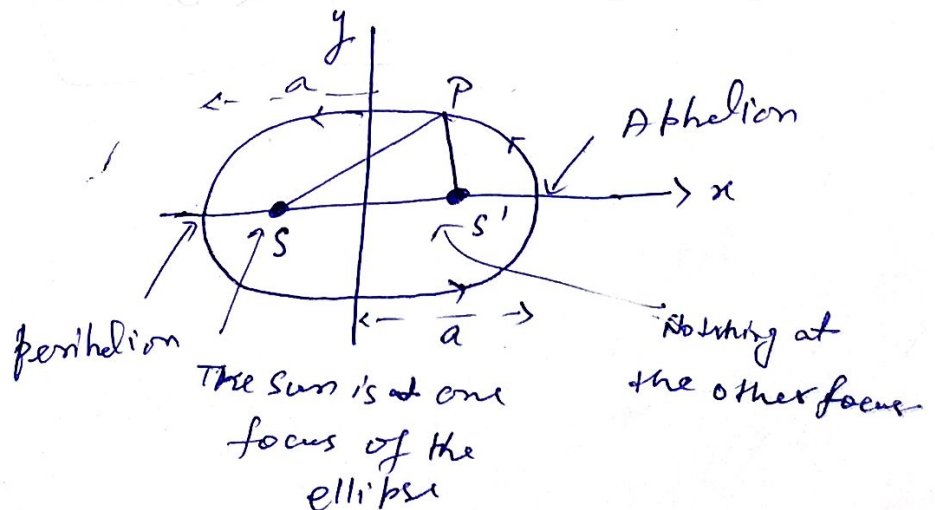 y
a
P
Aphelion
x
S
S'
a
perihelion
The Sun is at one
focus of the
ellipse
Nothing at
the other focus